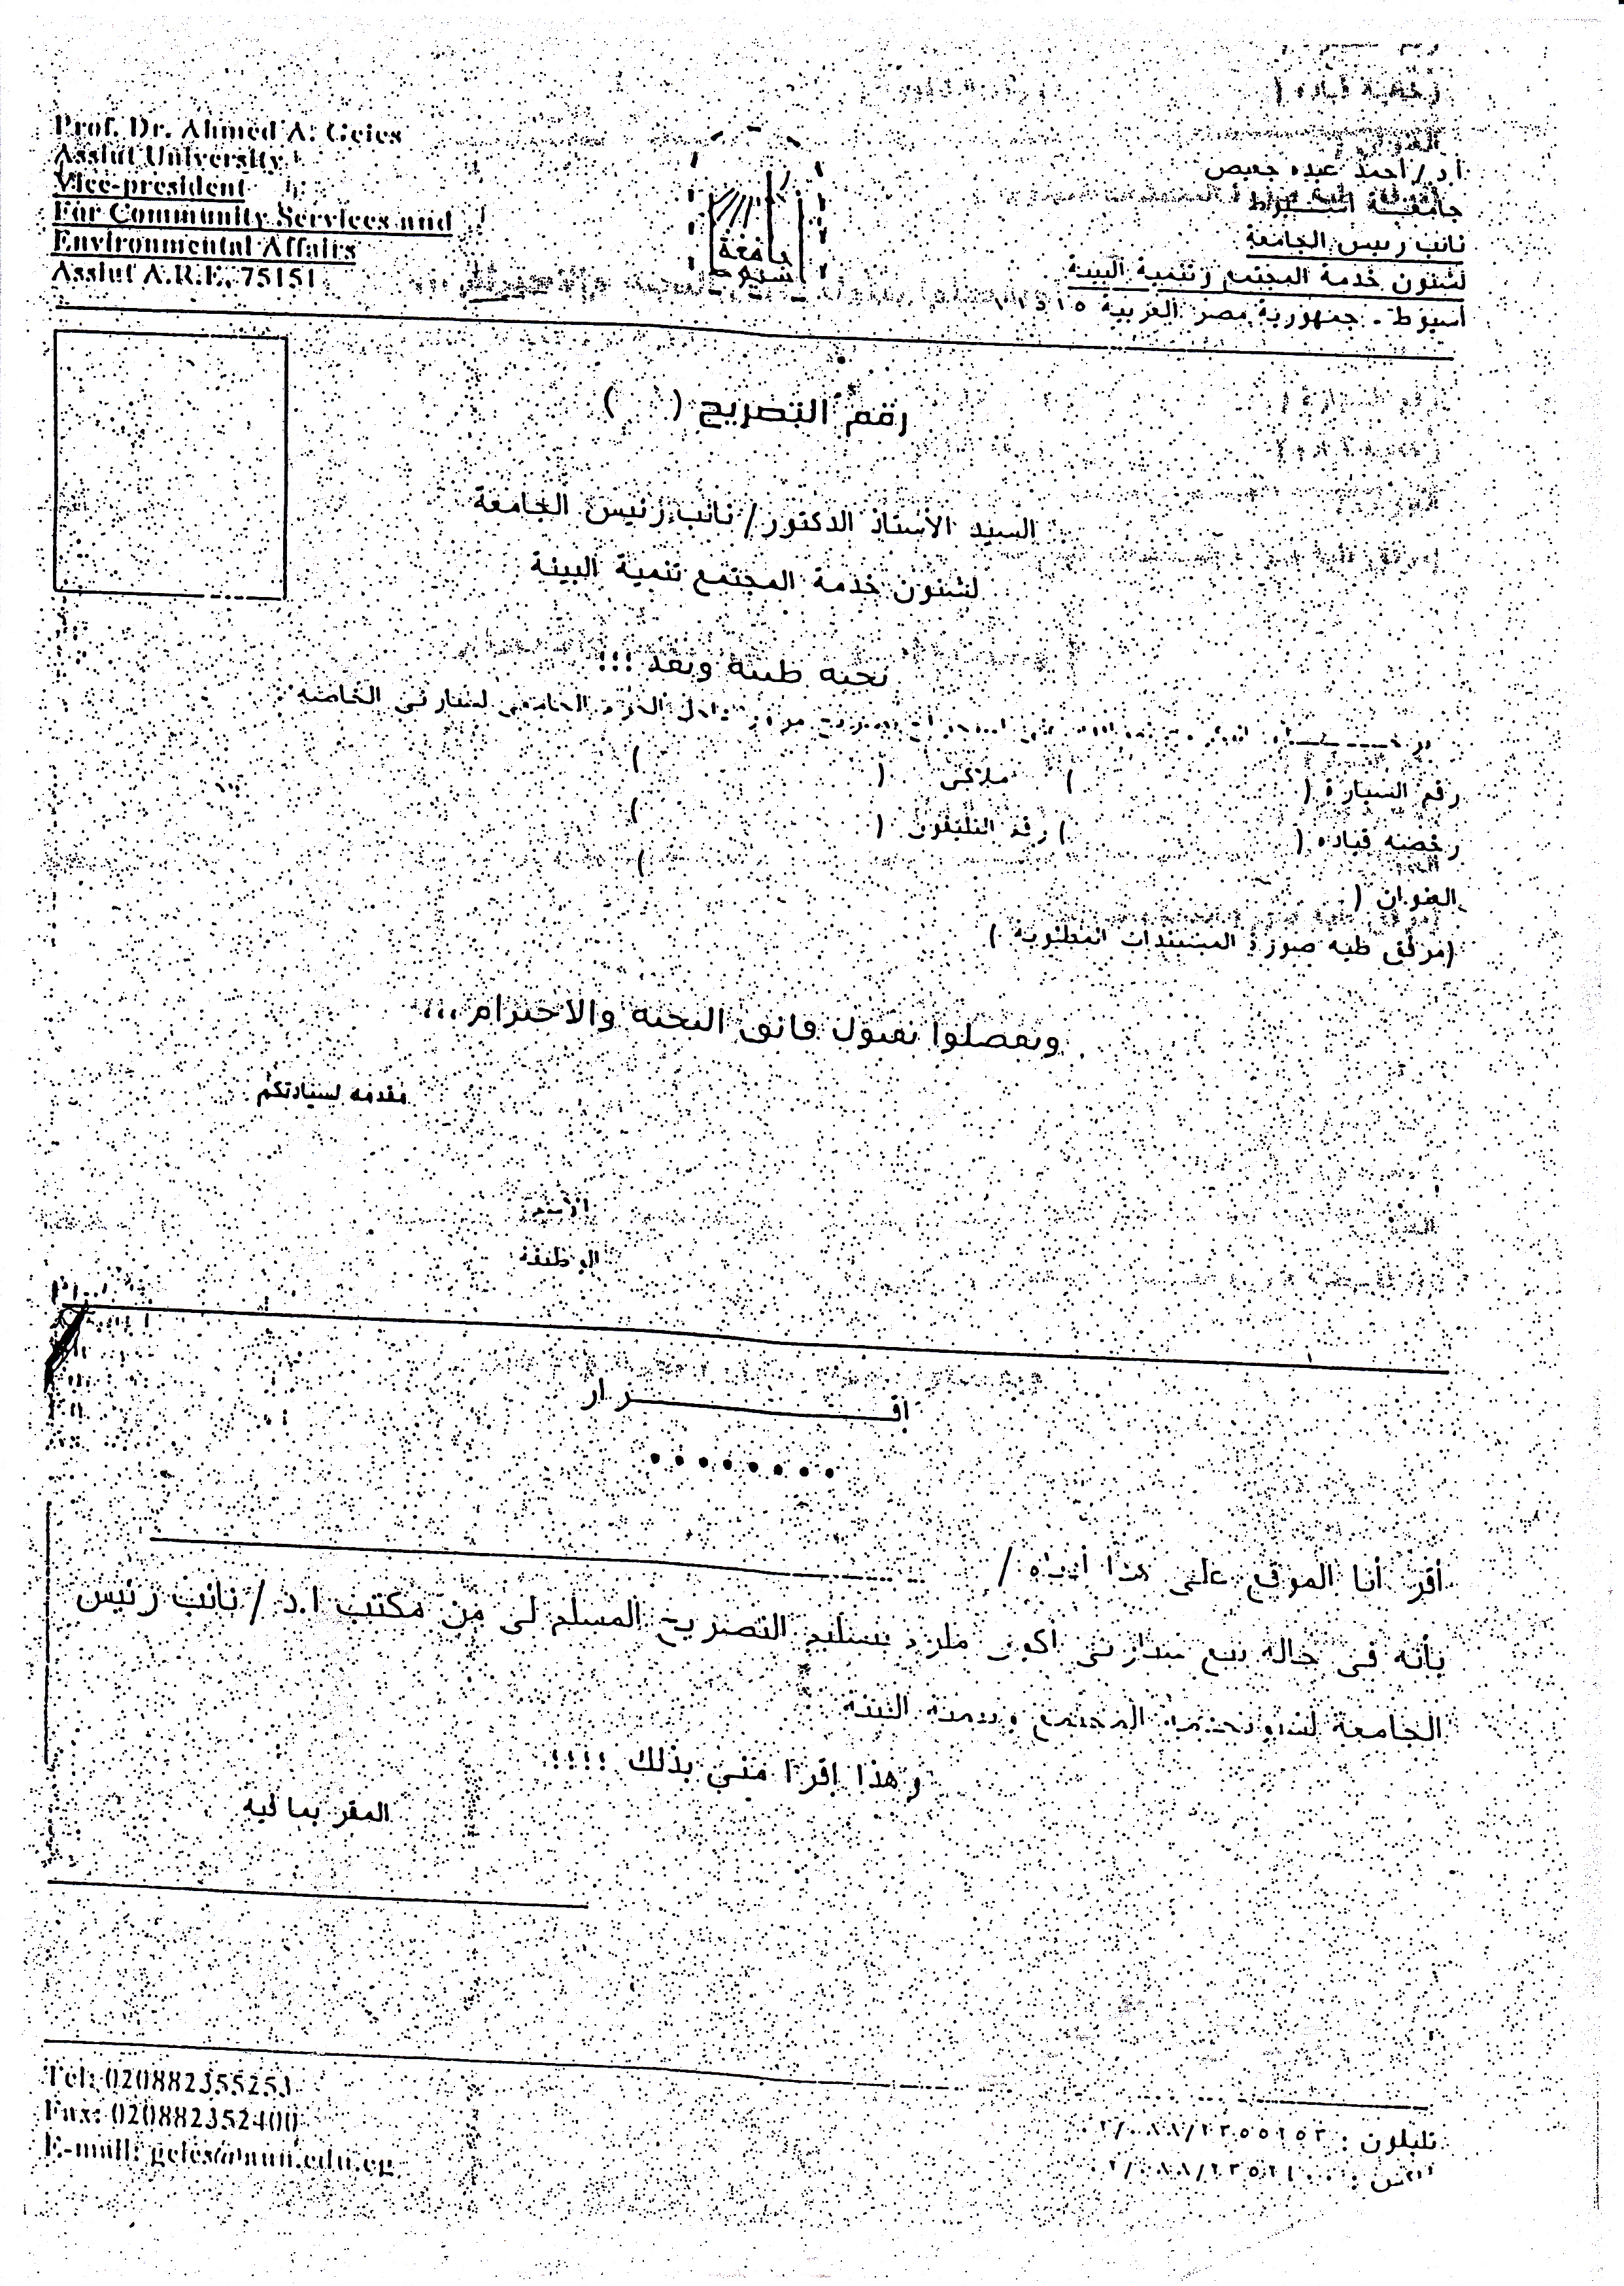 Prof. Dr. Ahmed A. Geies
Assiut University
Vice-president
For Community Services and
Environmental Affairs
Assiut A.R.E. 75151
أ.د/ أحمد عبده جعيص
جامعة أسيوط
نائب رئيس الجامعة
لشئون خدمة المجتمع وتنمية البيئة
أسيوط - جمهورية مصر العربية
جامعة
أسيوط
رقم التصريح ( )
السيد الأستاذ الدكتور / نائب رئيس الجامعة
لشئون خدمة المجتمع تنمية البيئة
تحية طيبة وبعد !!!
داخل الحرم الجامعى لسيارتى الخاصة
رقم السيارة ( ) ملاكى ( )
رخصة قيادة ( ) رقم التليفون ( )
العنوان ( )
(مرفق طيه صورة المستندات المطلوبة )
وتفضلوا بقبول فائق التحية والاحترام ،،،
مقدمه لسيادتكم
الاسم
الوظيفة
إقـــــــــرار
.......
أقر أنا الموقع على هذا أدناه /
بأنه فى حالة بيع سيارتى أكون ملزم بتسليم التصريح المسلم لى من مكتب ا.د / نائب رئيس
الجامعة لشئون خدمة المجتمع وتنمية البيئة
وهذا إقرا منى بذلك !!!!
المقر بما فيه
Tel: 020882355253
Fax: 020882352400
E-mail: geies@aun.edu.eg
تليفون :
فاكس :